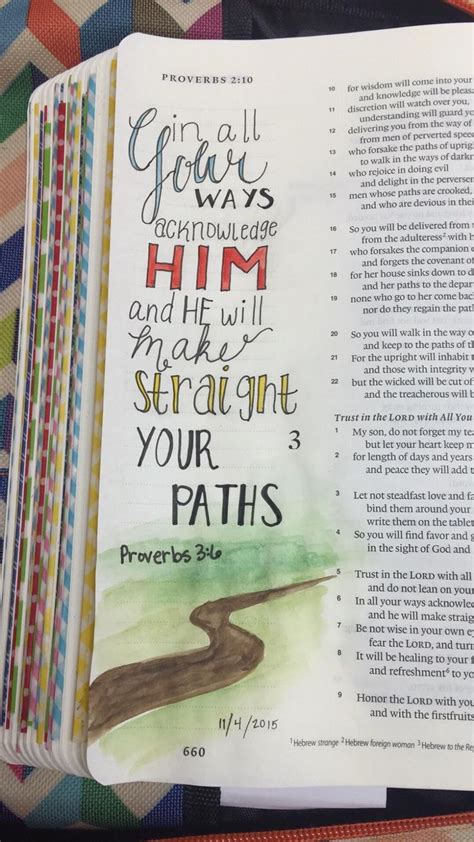 PROVERBS 2:10
in all
Your
WAYS
acknowledge
HIM
and HE will
make
straight
YOUR
PATHS
Proverbs 3:6
11/4/2015
660
10 for wisdom will come into your
and knowledge will be pleas
11 discretion will watch over you,
understanding will guard yo
12 delivering you from the way of
from men of perverted speec
13 who forsake the paths of uprig
to walk in the ways of darkn
14 who rejoice in doing evil
and delight in the perversen
15 men whose paths are crooked,
and who are devious in their
16 So you will be delivered from
from the adulteress² with h
17 who forsakes the companion
and forgets the covenant of
18 for her house sinks down to d
and her paths to the depar
19 none who go to her come back
nor do they regain the path
20 So you will walk in the way o
and keep to the paths of th
21 For the upright will inhabit t
and those with integrity w
22 but the wicked will be cut of
and the treacherous will b
Trust in the LORD with All You
3
1 My son, do not forget my tea
but let your heart keep m
2 for length of days and years
and peace they will add t
3 Let not steadfast love and fa
bind them around your
write them on the tablet
4 So you will find favor and g
in the sight of God and
5 Trust in the LORD with all
and do not lean on your
6 In all your ways acknowle
and he will make straig
7 Be not wise in your own ey
fear the LORD, and turn
8 It will be healing to your f
and refreshment⁶ to yo
9 Honor the LORD with you
and with the firstfruits
¹ Hebrew strange ² Hebrew foreign woman ³ Hebrew to the Re